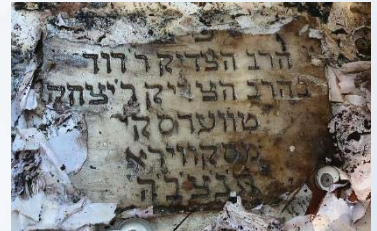 הרב הצדיק ר' דוד
בהרב הצדיק ר' יצחק
טווערסקי
מסקווירא
תנצבה